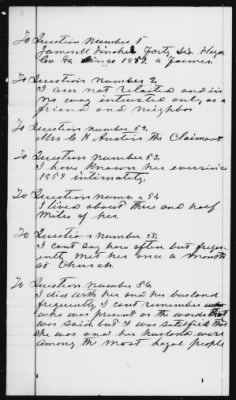 To Question Number 1
James M                Forty Six
Co Ga Since 1859 a farmer
To Question Number 2
I am not related and in
no way intrusted only as a
friend and neighbor
To Question number 52
Mrs C H Austin the Claimant
To Question Number 53
I have known her ever since
1859 intimately
To Question number 54
I lived about three and half
Miles of her
To Question number 55
I cant say how often but frequ
ently met her once a month
at Church
To Question Number 56
I did with her and her husband
frequently I cant remember
who was present or the words that
was said but I was satisfied that
she was and her husband were
among the most loyal people